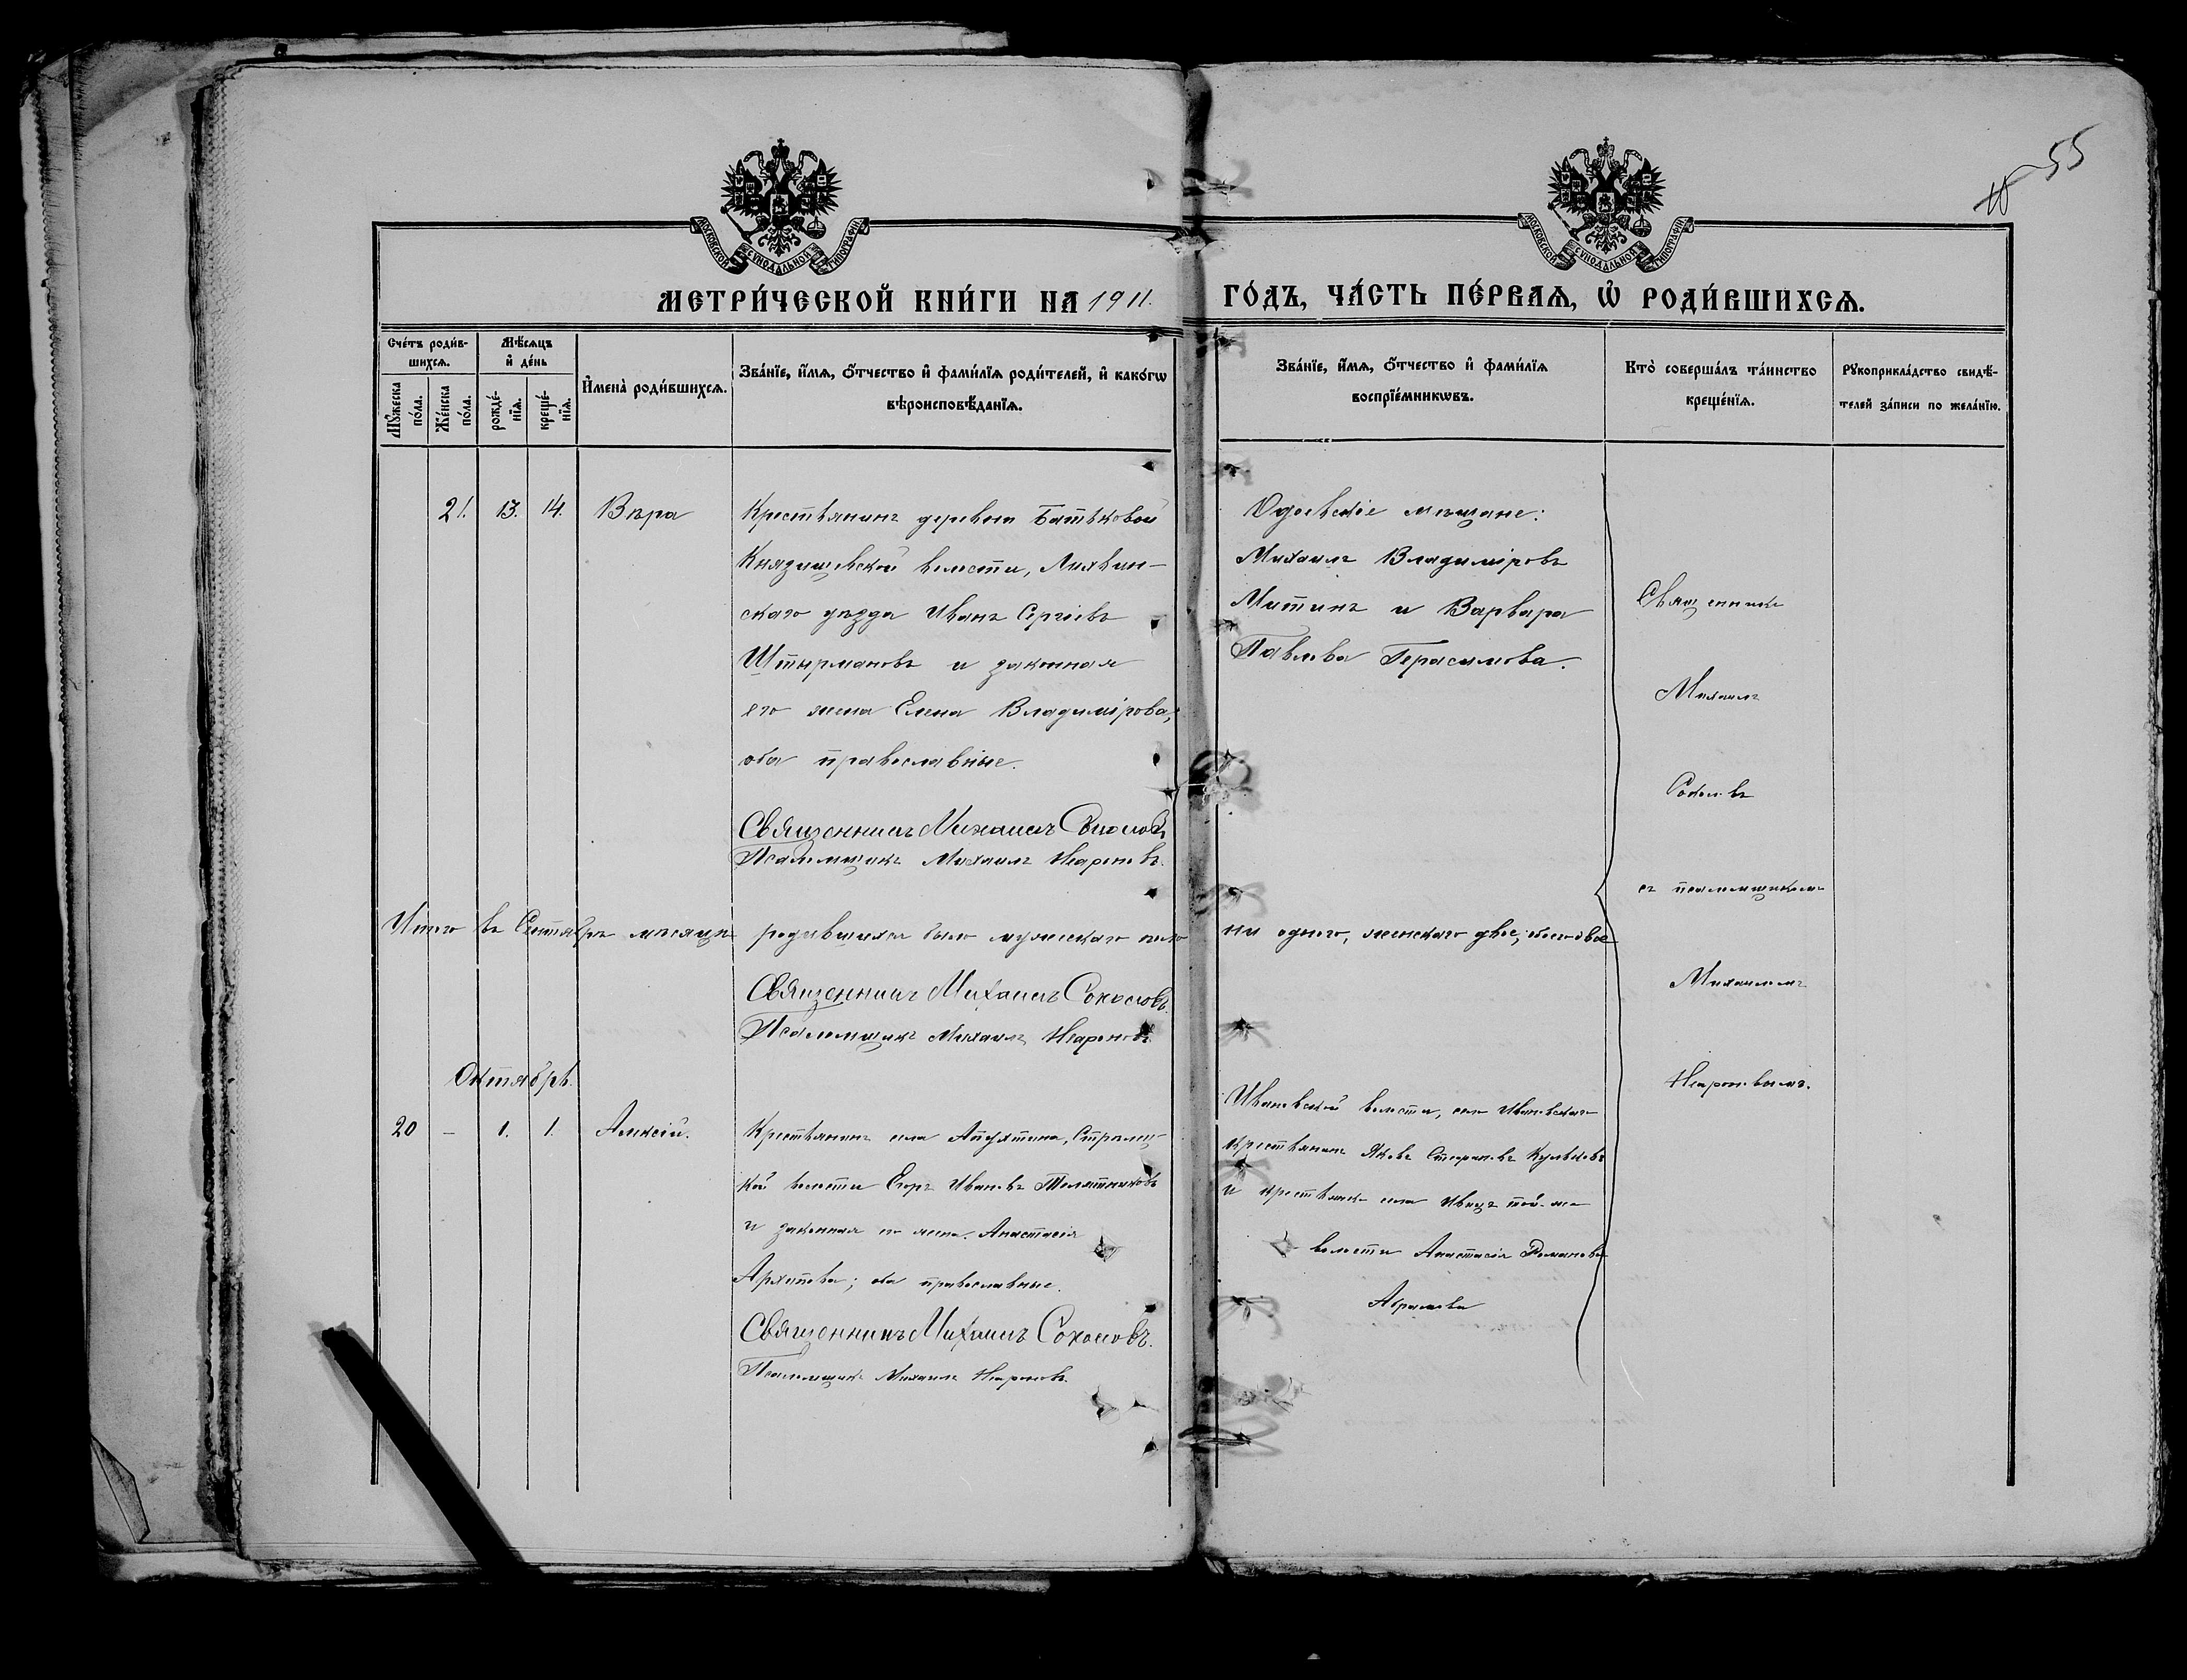 55
МОСКОВСКОЙ СУНОДАЛЬНОЙ ТИПОГРАФІИ
МОСКОВСКОЙ СУНОДАЛЬНОЙ ТИПОГРАФІИ
МЕТРИ́ЧЕСКОЙ КНИ́ГИ НА 1911. ГО́ДЪ, ЧА́СТЬ ПЕ́РВАѦ, Ѡ҆ РОДИ́ВШИХСѦ.
Сче́тъ роди́в-
шихсѧ.
Мꙋ́жеска по́ла.
Же́нска по́ла.
Мѣ́сѧцъ
и҆ де́нь
рожде́-
нїѧ.
креще́-
нїѧ.
И҆мена̀ роди́вшихсѧ.
Зва́нїе, и҆́мѧ, ѻ҆́тчество и҆ фамѝлїѧ роди́телей, и҆ како́гѡ
вѣроисповѣ́данїѧ.
Зва́нїе, и҆́мѧ, ѻ҆́тчество и҆ фами́лїѧ
воспрїе́мникѡвъ.
Кто̀ соверша́лъ та́инство
креще́нїѧ.
Рꙋкоприкла́дство свидѣ́-
телей за́писи по жела́нїю.
21. 13. 14. Вѣра
Крестьянинъ деревни Батьковой
Княгищевской волости, Лихвин-
скаго уѣзда Иванъ Сергіевъ
Штырмановъ и законная
его жена Елена Владимірова,
оба православные.
Священникъ Михаилъ Соколовъ
Псаломщикъ Михаилъ
Одоевскіе мѣщане:
Михаилъ Владиміровъ
Митинъ и Варвара
Павлова Герасимова.
Священникъ
Михаилъ
Соколовъ
съ псаломщикомъ
Михаиломъ
Итого въ Сентябрѣ мѣсяцѣ родившихся было мужескаго пола ни одного, женскаго двое, обоего двое
Священникъ Михаилъ Соколовъ.
Псаломщикъ Михаилъ
Октябрь.
20 – 1. 1. Алексій.
Крестьянинъ села Апухтина, Стрѣлец-
кой волости Егоръ Ивановъ Телятниковъ
и законная его жена Анастасія
Архипова; оба православные.
Священникъ Михаилъ Соколовъ.
Псаломщикъ Михаилъ
Ивановской волости, села Ивановскаго
крестьянинъ Яковъ Стефановъ
и крестьянка села Ивицъ той-же
волости Анастасія Романова
Абрамова